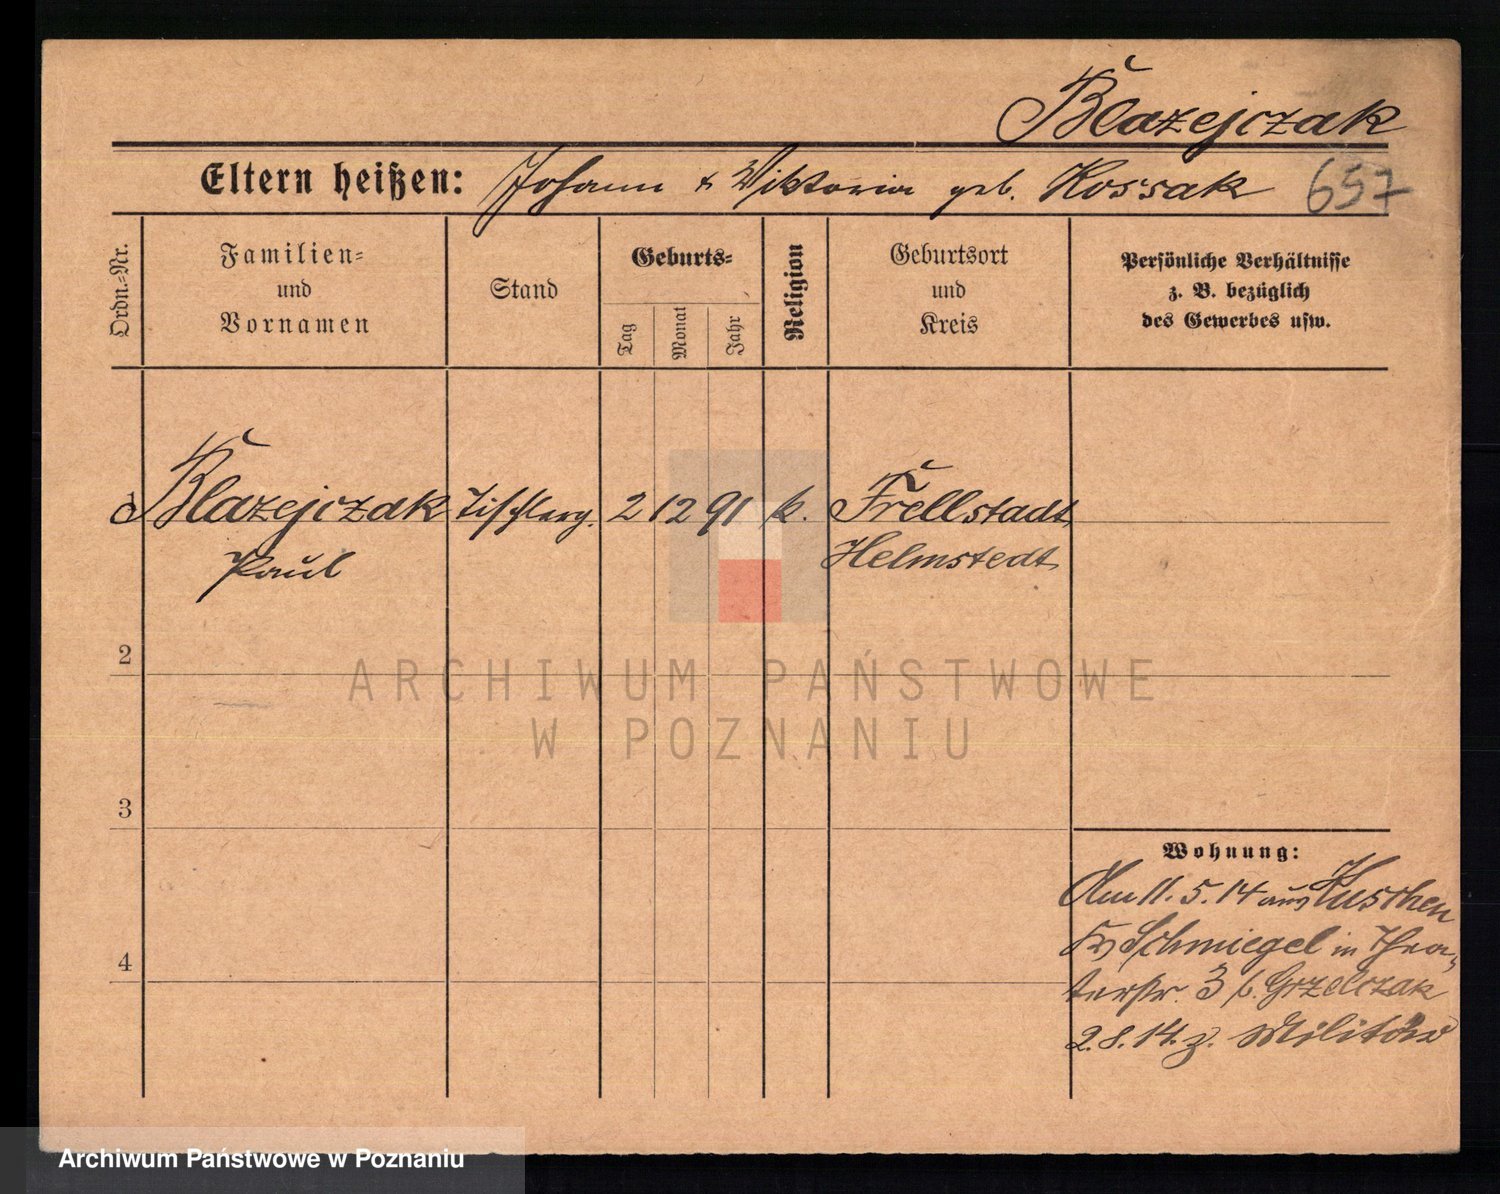 Blazejczak
Eltern heißen: Johann & Viktoria geb. Kossak 657
Ordn.-Nr.
Familien-
und
Vornamen
Stand
Geburts-
Tag
Monat
Jahr
Religion
Geburtsort
und
Kreis
Persönliche Verhältnisse
z. B. bezüglich
des Gewerbes usw.
1 Blazejczak Tischlerg. 2 12 91 k. Frellstadt
Paul Helmstedt
2
ARCHIWUM PAŃSTWOWE
W POZNANIU
3
Wohnung:
Am 11.5.14 aus Kuschen
Kr Schmiegel in Thea-
terstr. 3 b. Grzelczak
4
2.8.14. z. Militär
Archiwum Państwowe w Poznaniu